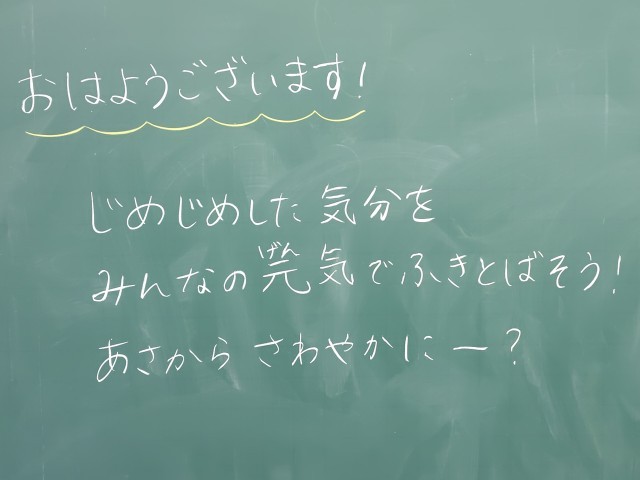 おはようございます!
じめじめした気分を
みんなの元気でふきとばそう!
げん
あさから さわやかにー?